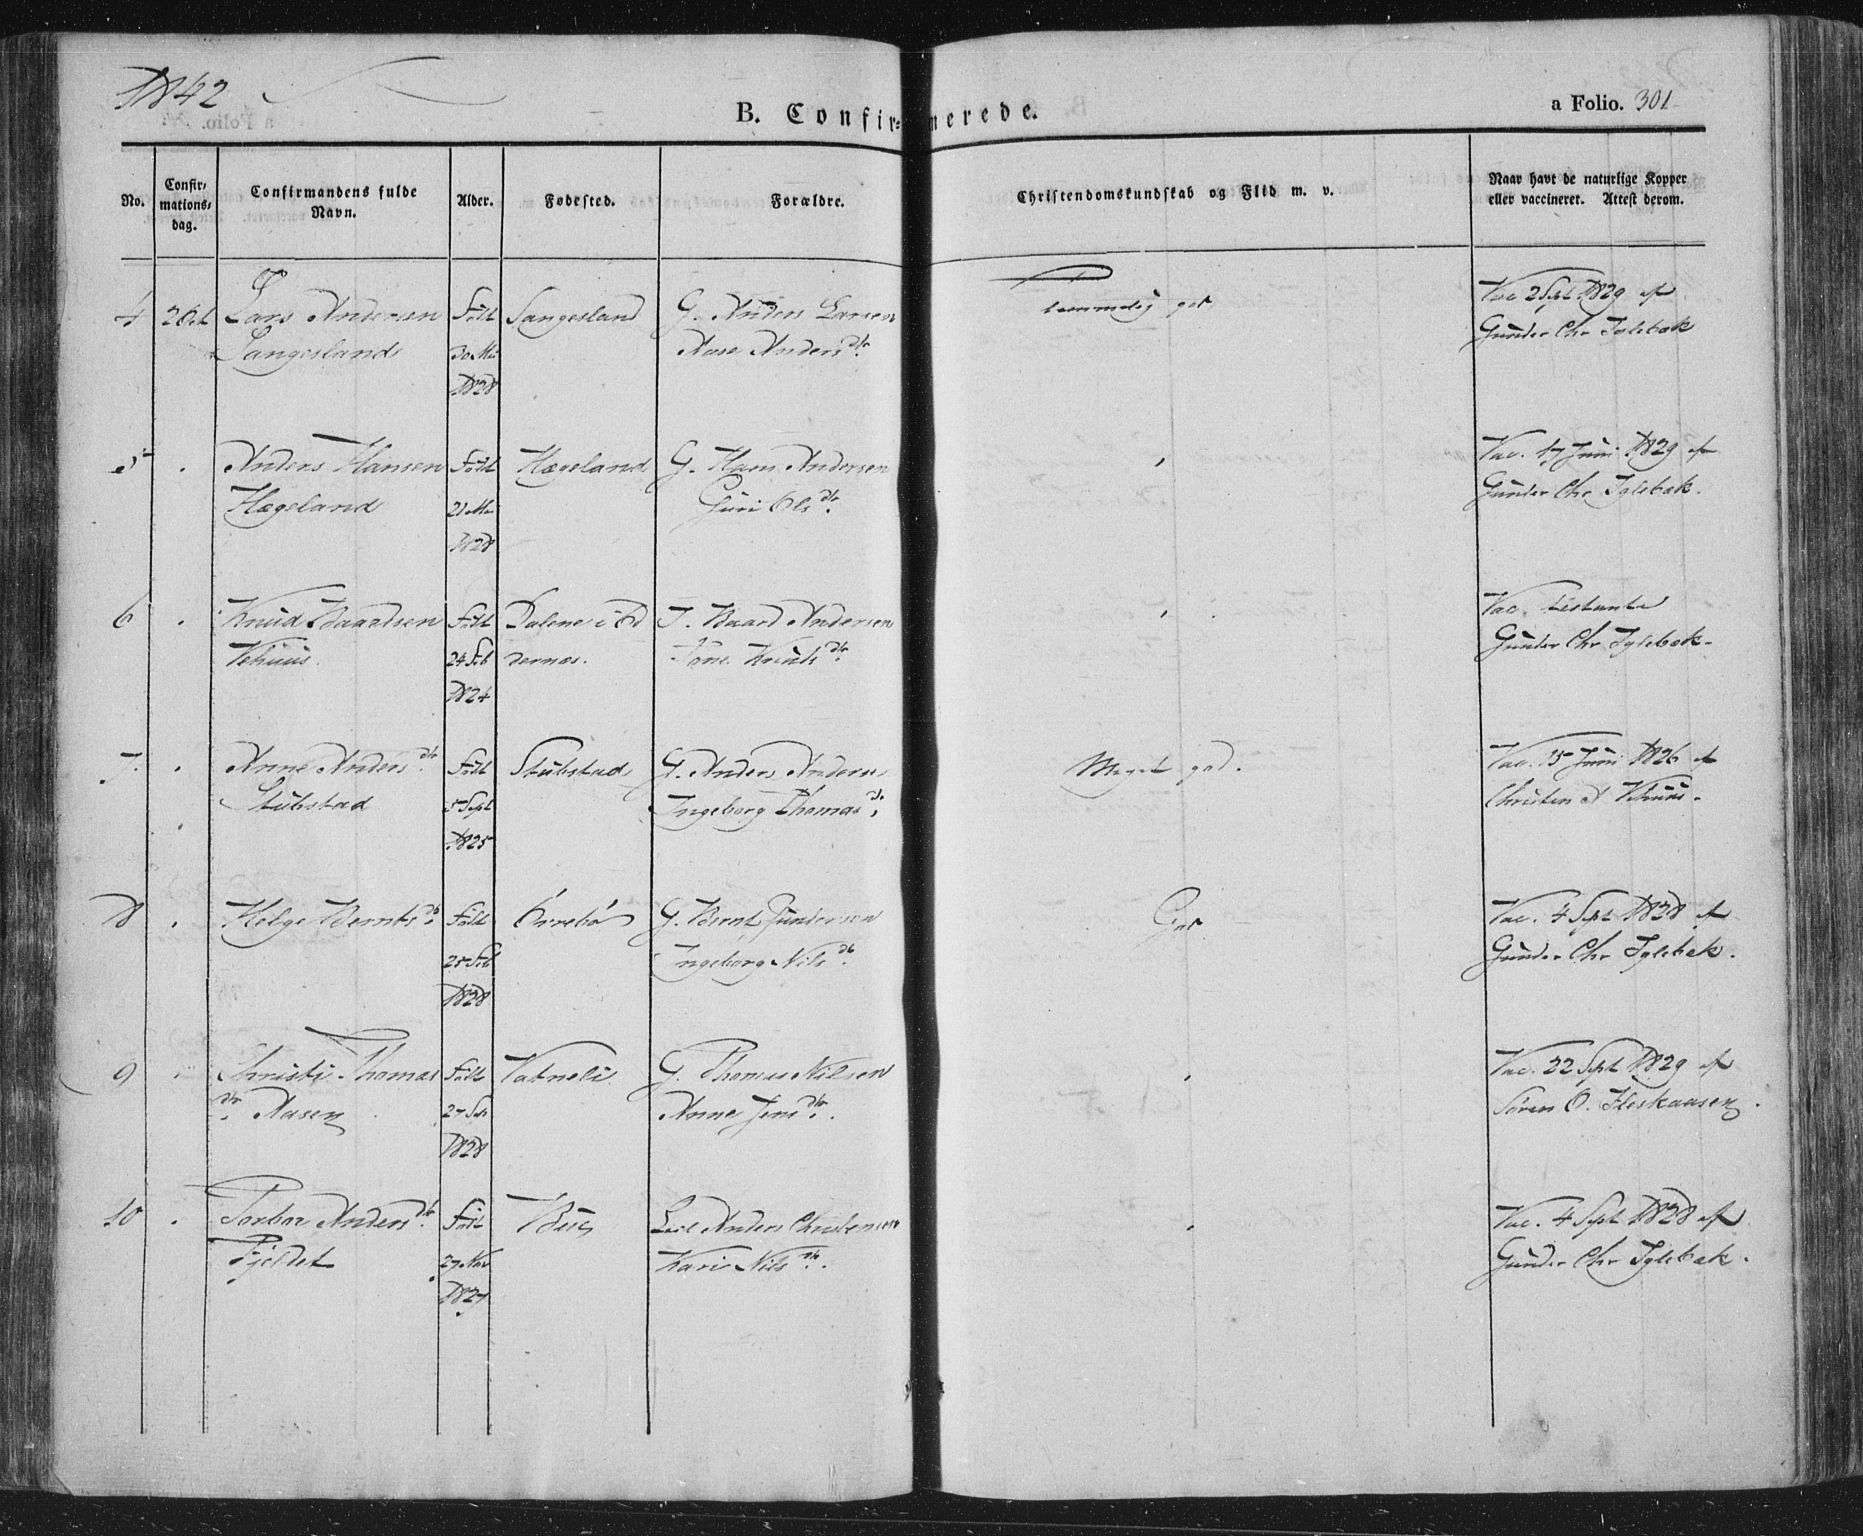 1842
B. Confirmerede.
a Folio. 301
No.
Confirmationsdag.
Confirmandens fulde Navn.
Alder.
Fødested.
Forældre.
Christendomskundskab og Flid m. v.
Naar havt de naturlige Kopper eller vaccineret. Attest derom.
4 2 Oct Lars Andersen Født Sangesland G. Anders Larsen temmelig god Vac 2 Sept 1829 af
Sangesland 30 Mai Aase Andersdtr. Gunder Chr Iglebæk
1828
5 . Anders Hansen Født Hægeland G. Hans Andersen , Vac. 17 Juni 1829 af
Hægeland 21 Guri Olsdtr. Gunder Chr Iglebæk.
1828
6 . Knud Baardsen Født Dalene i Od T. Baard Andersen , Vac. testante
Vehuus. 24 Feb dernæs. Tone Knudsdtr. Gunder Chr Iglebæk.
1824
7. . Anne Andersdtr. Født Stubstad G. Anders Andersen Meget god. Vac. 15 Juni 1826 af
Stubstad 5 Sept Ingeborg Thomasdtr. Christen A Vehuus.
1825
8 . Helge Berntsdtr. Født Orrebø G. Bernt Gundersen God Vac. 4 Sept 1828 af
25 Feb Ingeborg Nilsdtr. Gunder Chr Iglebæk.
1828
9 Christi Thomas Født Vatneli G. Thomas Nilsen , Vac. 22 Sept 1829 af
dtr. Aasen 27 Anne Jensdtr. Søren O. Fleskaasen.
1828
10 . Torbor Andersdtr. Født Anders Christensen , Vac. 4 Sept 1828 af
Fjeldet 27 Nov Kari Nilsdtr. Gunder Chr Iglebæk.
1827